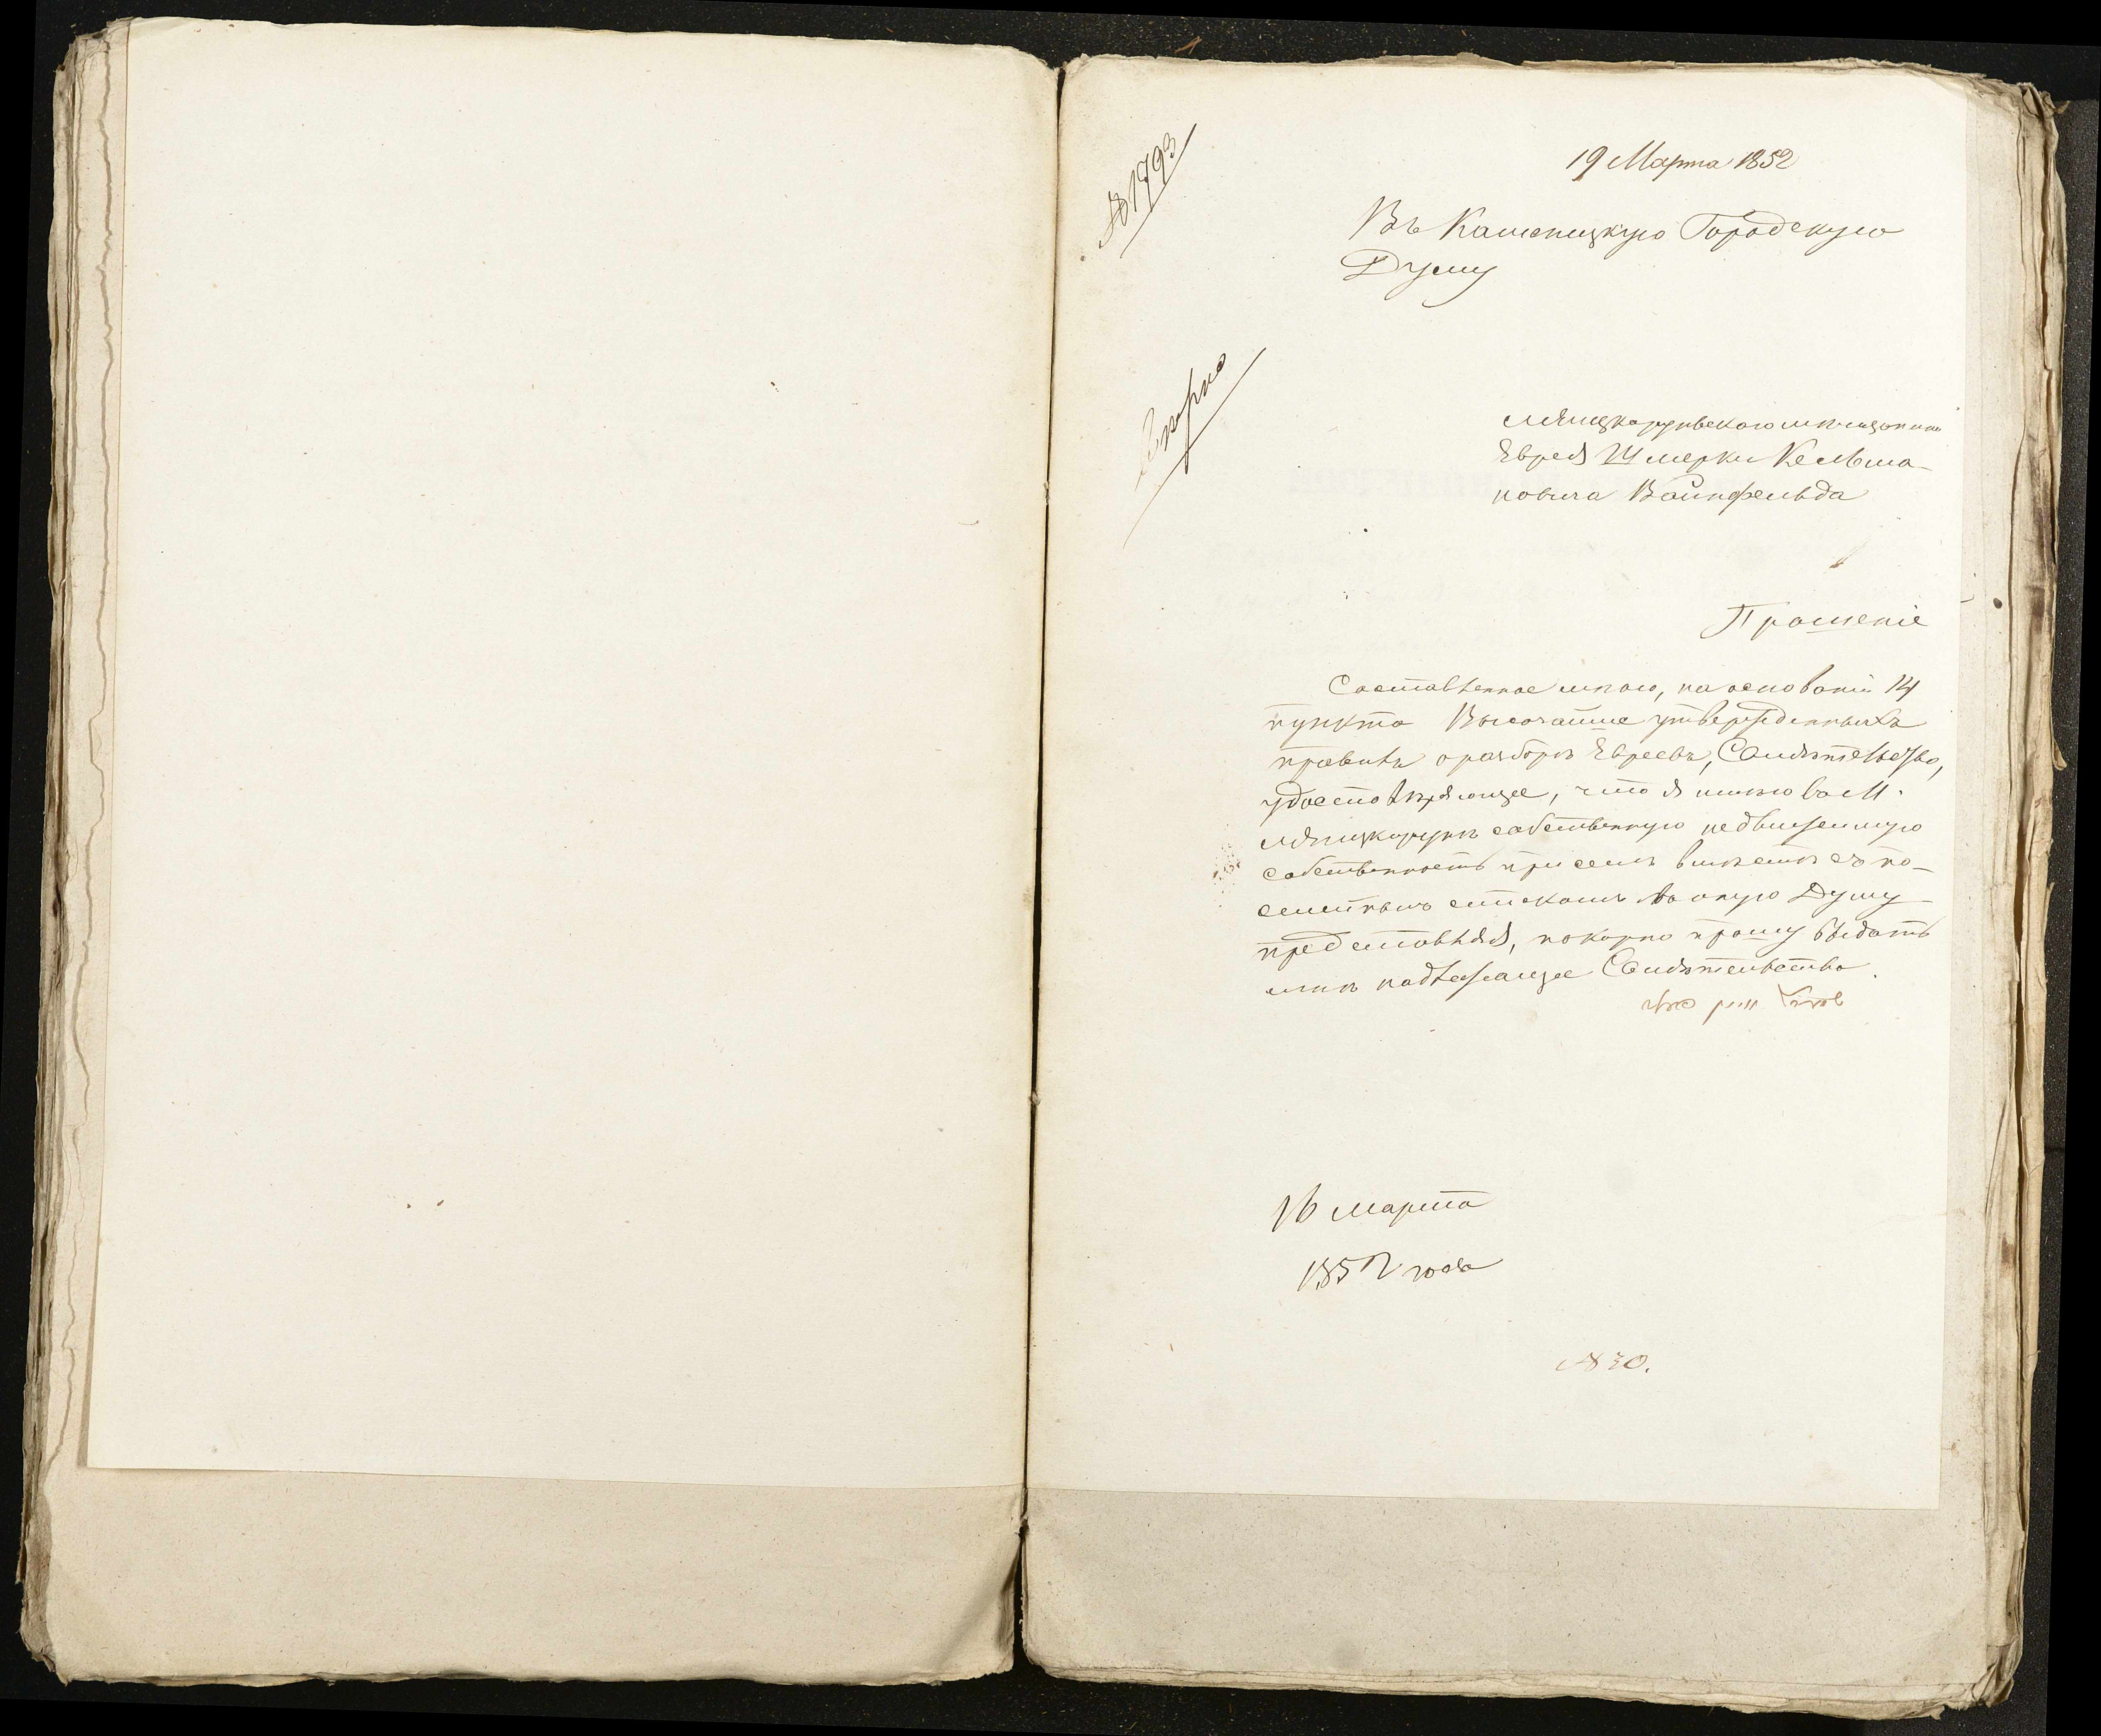 № 1793
19 Марта 1852
Въ Каменецкую Городскую
Думу
Ляицкорунского мѣщанина
Еврея Шмерки Кельма-
новича Вайнфельда
Прошеніе
Составленное мною, на основаніи 14
пункта Высочайше утвержденныхъ
правилъ о разборѣ Евреевъ, Свидѣтельство,
удостовѣряющее, что я имѣю въ М.
Ляицкорунѣ собственную недвижимую
собственность при семъ вмѣстѣ съ по-
семейнымъ спискомъ въ оную Думу
представляя, покорно прошу выдать
мнѣ надлежащее Свидѣтельство.
16 марта
1852 года
№ 30.